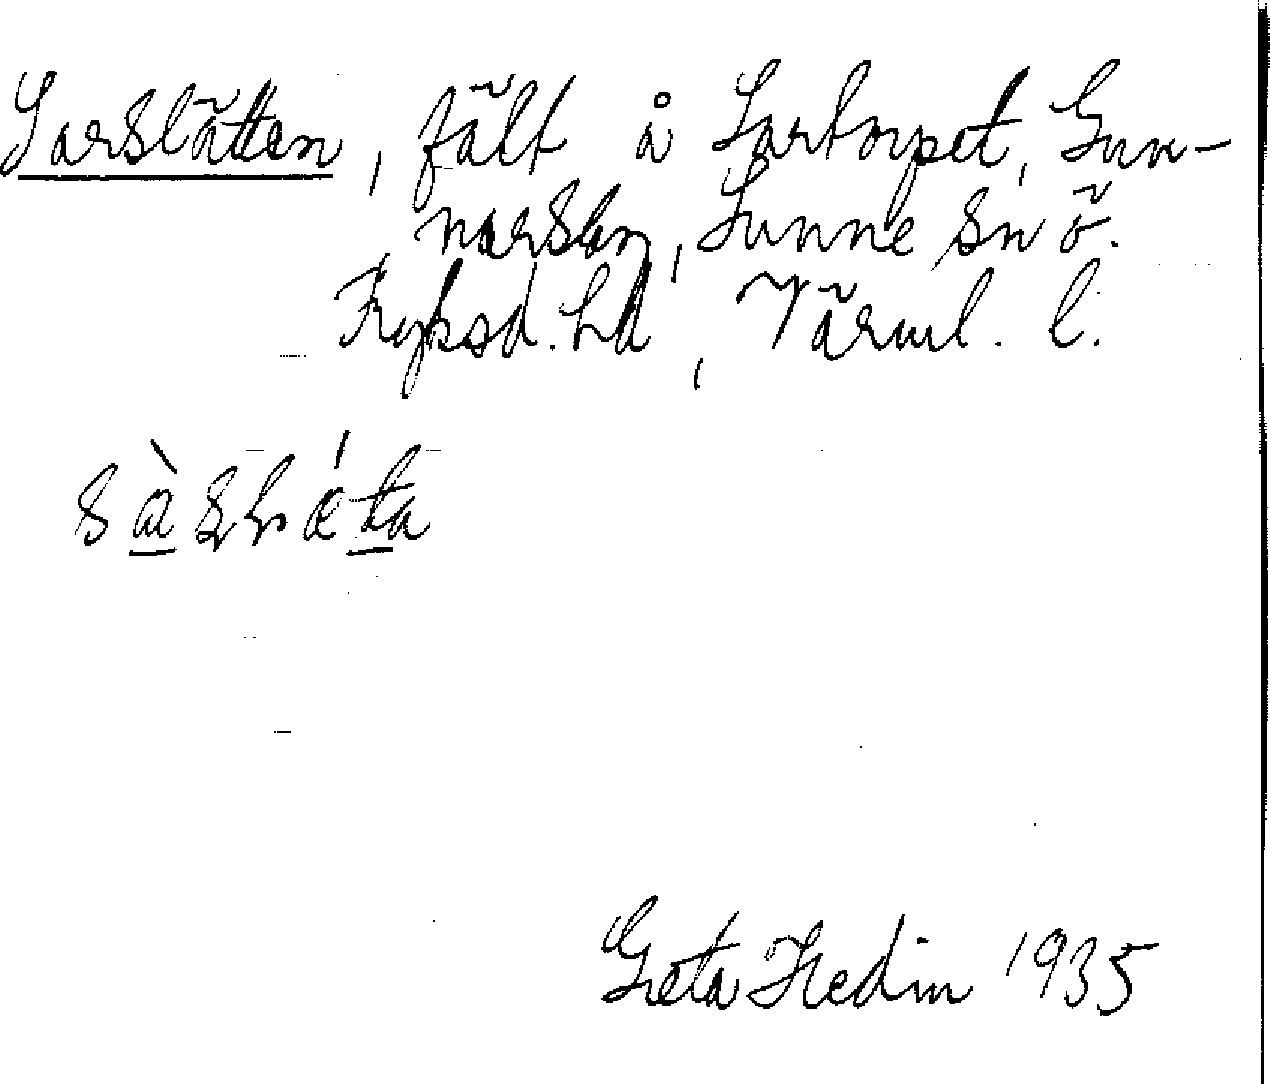 Sarslätten, fält å Sartorpet, Gun-
narsbyn, Sunne sn ö.
Fryksd. hd, Värml. l.
Greta Hedin 1935